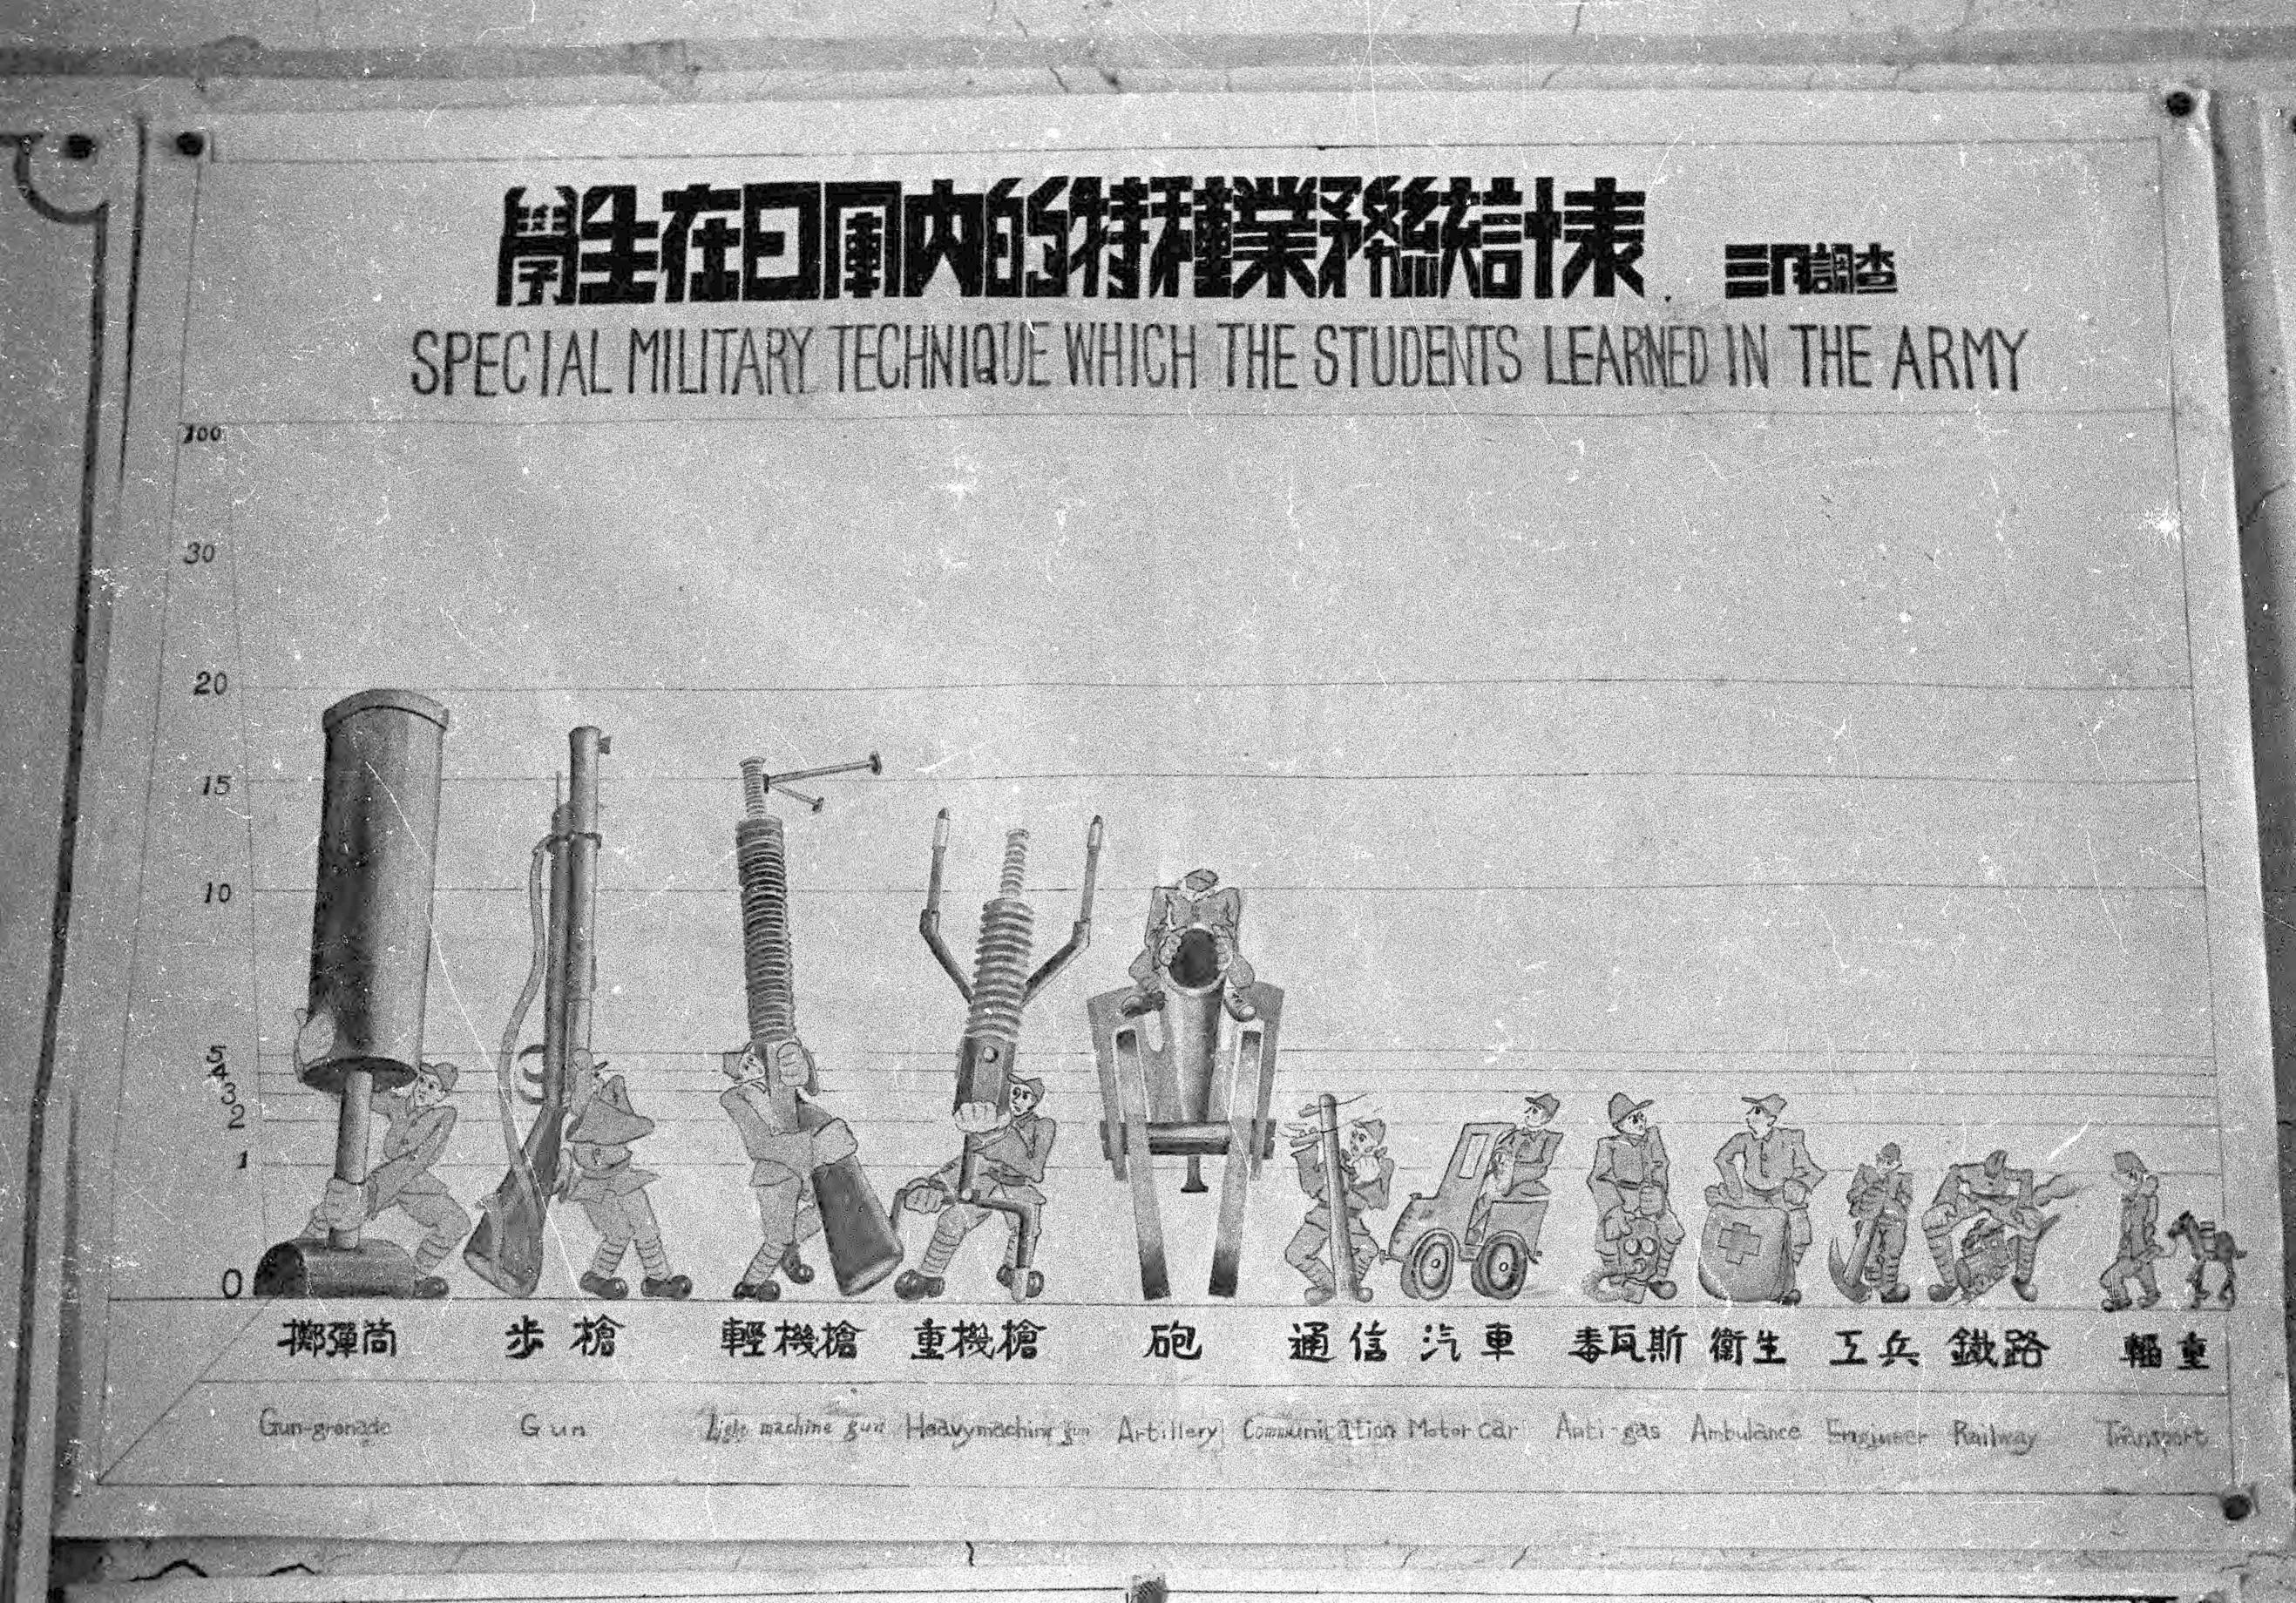 學生在日軍內的特種業務統計表 三月調查
SPECIAL MILITARY TECHNIQUE WHICH THE STUDENTS LEARNED IN THE ARMY
100
30
20
15
10
5
4
3
2
1
0
擲彈筒 步槍 輕機槍 重機槍 砲 通信 汽車 毒瓦斯 衛生 工兵 鐵路 輜重
Gun-grenade Gun Light machine gun Heavymachine gun Artillery Communication Motor car Anti-gas Ambulance Engineer Railway Transport